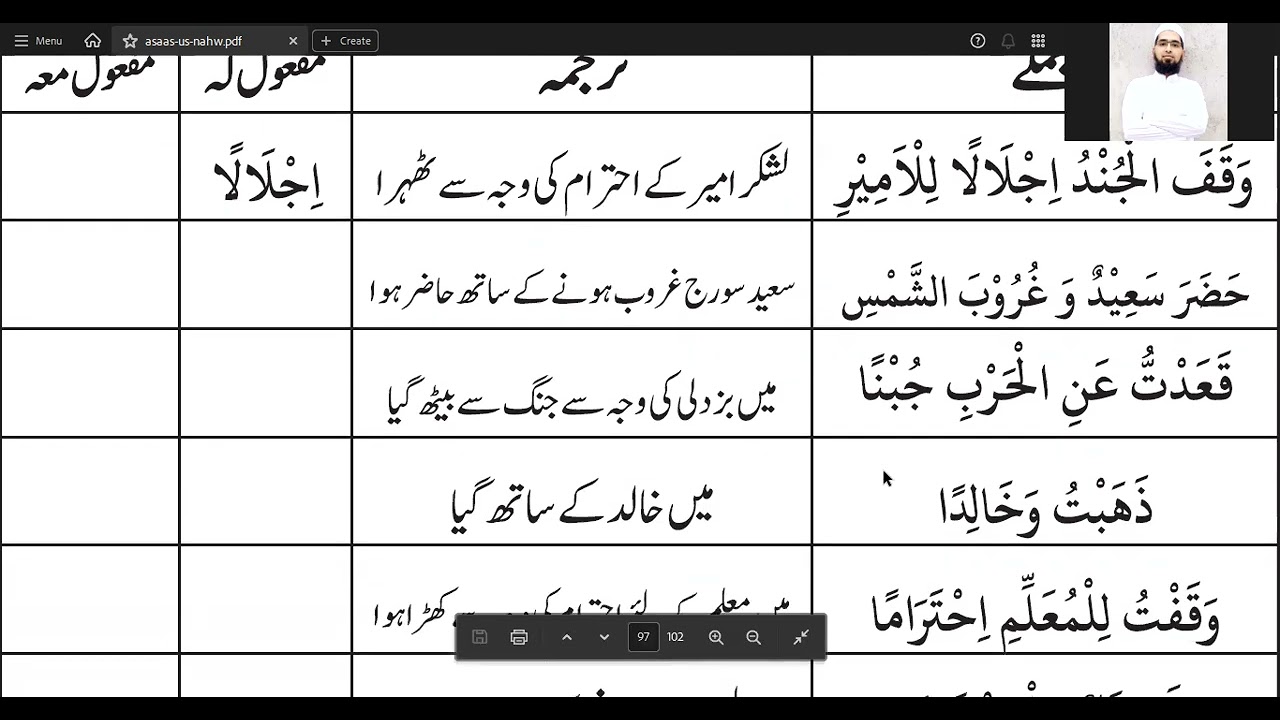 Menu asaas-us-nahw.pdf Create
جملے ترجمہ مفعول لہ مفعول معہ
وَقَفَ الْجُنْدُ اِجْلَالًا لِلْاَمِيْرِ لشکر امیر کے احترام کی وجہ سے ٹھہرا اِجْلَالًا
حَضَرَ سَعِيْدٌ وَ غُرُوْبَ الشَّمْسِ سعید سورج غروب ہونے کے ساتھ حاضر ہوا
قَعَدْتُّ عَنِ الْحَرْبِ جُبْنًا میں بزدلی کی وجہ سے جنگ سے بیٹھ گیا
ذَهَبْتُ وَخَالِدًا میں خالد کے ساتھ گیا
وَقَفْتُ لِلْمُعَلِّمِ اِحْتَرَامًا میں معلم کے لئے احترام کی وجہ سے کھڑا ہوا
97 102